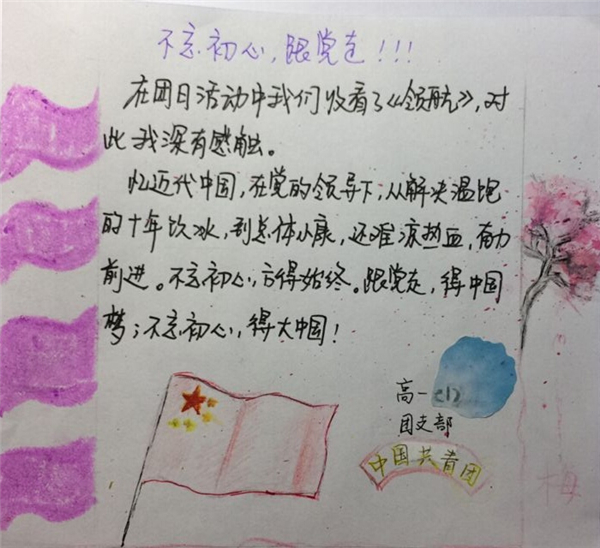 不忘初心,跟党走!!!
在团日活动中我们收看了《领航》,对
此我深有感触。
忆近代中国,在党的领导下,从解决温饱
的十年饮冰,到总体小康,还难凉热血,奋力
前进。不忘初心,方得始终。跟党走,得中国
梦;不忘初心,得大中国!
高一
团支部
中国共青团
梅